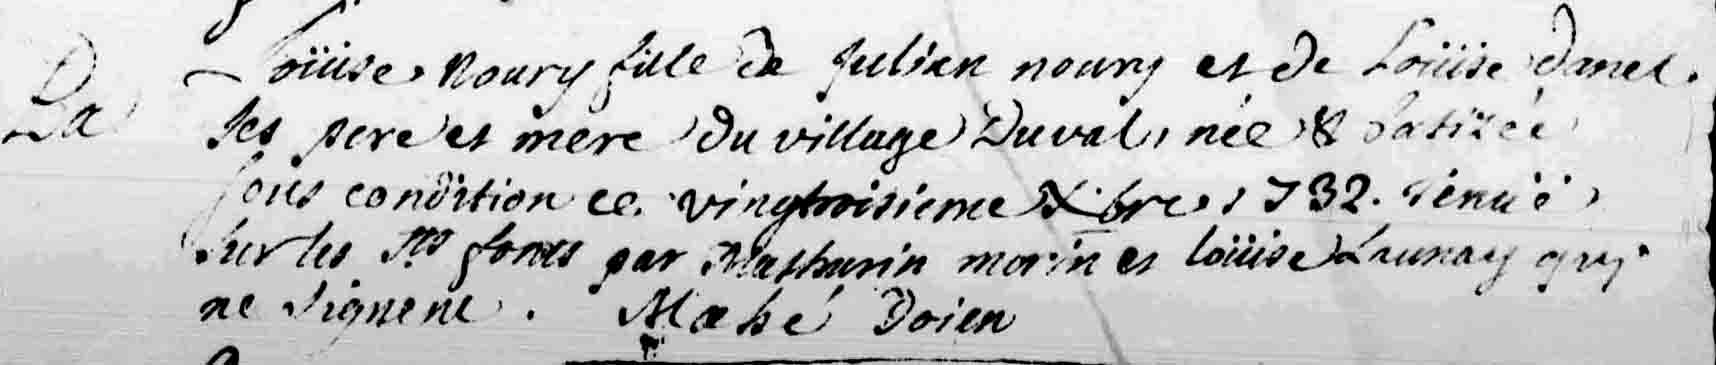 Loüise noury fille de Julien noury et de Loüise danet.
La ses pere et mere du village Duval, née & batizée
sous condition ce. vingtroisieme Xbre 1732. tenuë
sur les sts fonts par Mathurin morin et loüise Launay qui
ne signent. Mahé Doien